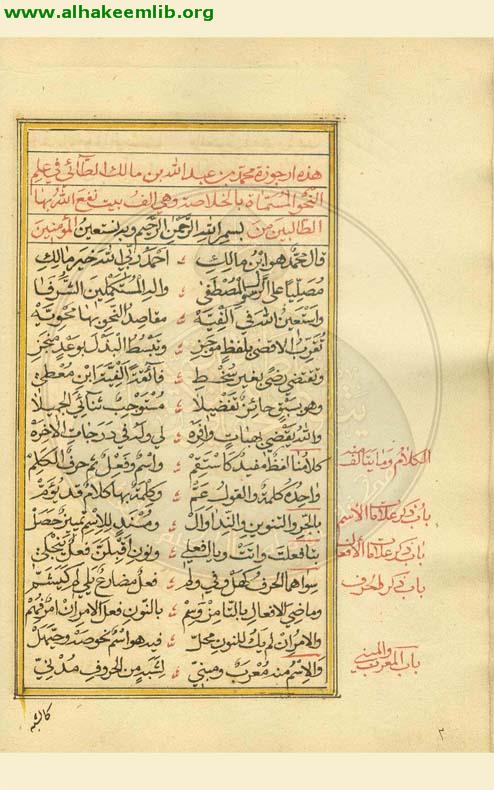 www.alhakeemlib.org
هذه ارجوزة محمد بن عبد الله بن مالك الطائي في علم
النحو المسماة بالخلاصة وهي الف بيت نفع الله بها
الطالبين من بسم الله الرحمن الرحيم وبه نستعين المؤمنين
قال محمد هو ابن مالك احمد ربي الله خير مالك
مصليا على الرسول المصطفى واله المستكملين الشرفا
واستعين الله في الفية مقاصد النحو بها محوية
تقرب الاقصى بلفظ موجز وتبسط البذل بوعد منجز
وتقتضي رضى بغير سخط فائقة الفية ابن معطي
وهو بسبق حائز تفضيلا مستوجب ثنائي الجميلا
والله يقضي بهبات وافرة لي وله في درجات الاخرة
الكلام وما يتالف
كلامنا لفظ مفيد كاستقم واسم وفعل ثم حرف الكلم
واحده كلمة والقول عم وكلمة بها كلام قد يؤم
باب ذكر علامات الاسم
بالجر والتنوين والندا وال ومسند للاسم تمييز حصل
باب ذكر علامات الافعال
بتا فعلت واتت ويا افعلي ونون اقبلن فعل ينجلي
باب ذكر الحرف
سواهما الحرف كهل وفي ولم فعل مضارع يلي لم كيشم
وماضي الافعال بالتا مز وسم بالنون فعل الامر ان امر فهم
والامر ان لم يك للنون محل فيه هو اسم نحو صه وحيهل
باب المعرب والمبني
والاسم منه معرب ومبني لشبه من الحروف مدني
كالشبه
٢